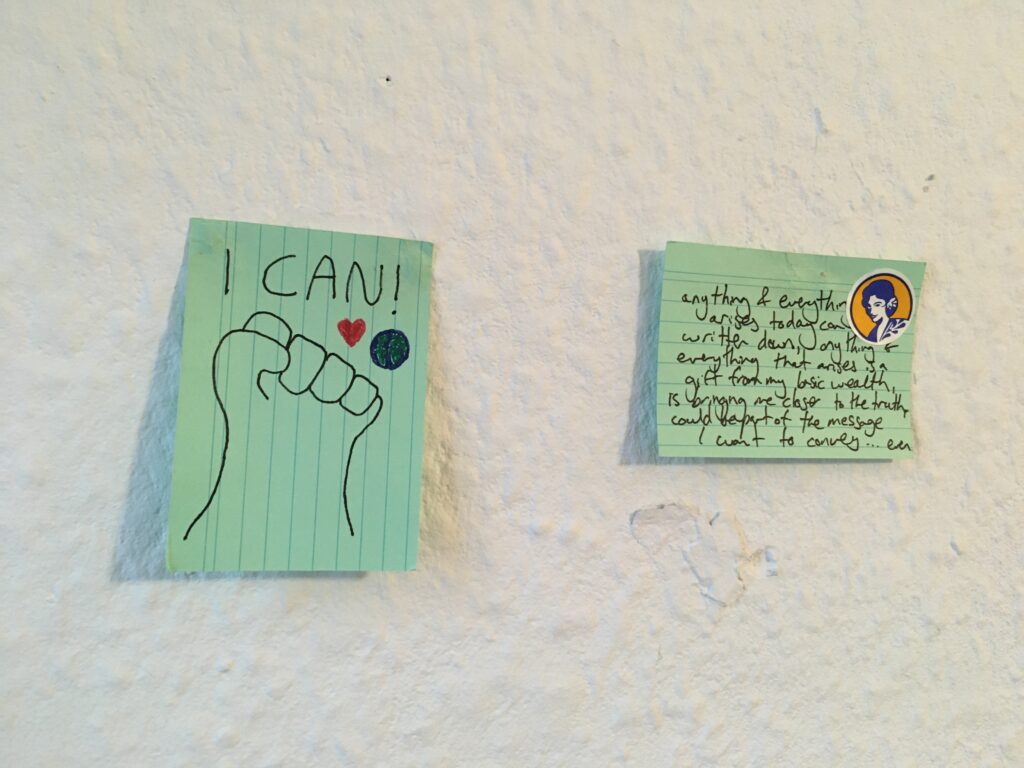 I CAN!
anything & everything
arises today can
written down, anything &
everything that arises is a
gift from my basic wealth,
is bringing me closer to the truth
could be part of the message
I want to convey... even